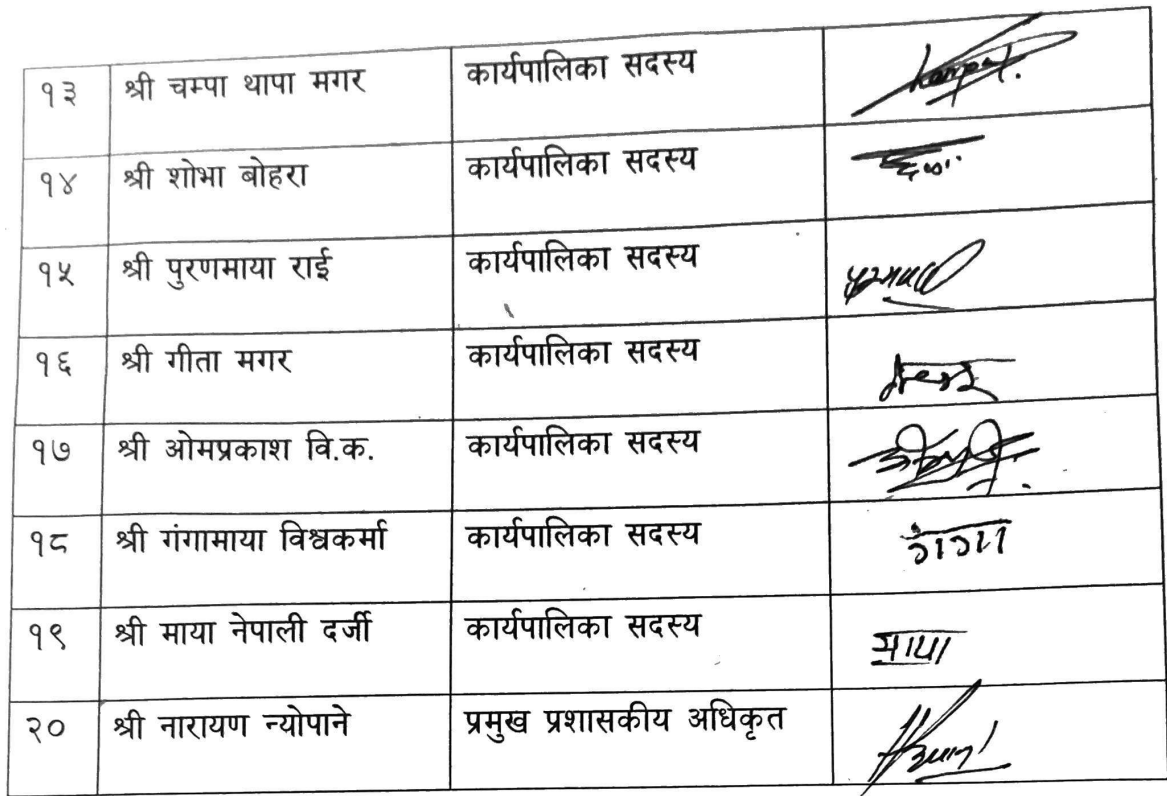 १३ श्री चम्पा थापा मगर कार्यपालिका सदस्य
१४ श्री शोभा बोहरा कार्यपालिका सदस्य
१५ श्री पुरणमाया राई कार्यपालिका सदस्य
१६ श्री गीता मगर कार्यपालिका सदस्य
१७ श्री ओमप्रकाश वि.क. कार्यपालिका सदस्य
१८ श्री गंगामाया विश्वकर्मा कार्यपालिका सदस्य गंगा
१९ श्री माया नेपाली दर्जी कार्यपालिका सदस्य माया
२० श्री नारायण न्योपाने प्रमुख प्रशासकीय अधिकृत